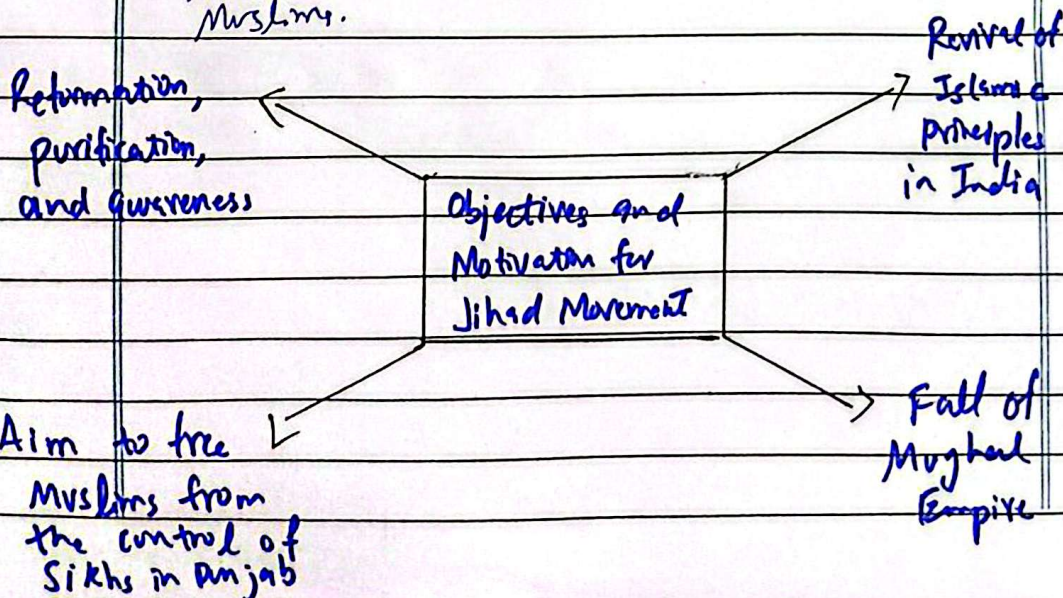 Muslims.
Reformation,
purification,
and awareness
Revival of
Islamic
principles
in India
Objectives and
Motivation for
Jihad Movement
Aim to free
Muslims from
the control of
Sikhs in Punjab
Fall of
Mughal
Empire